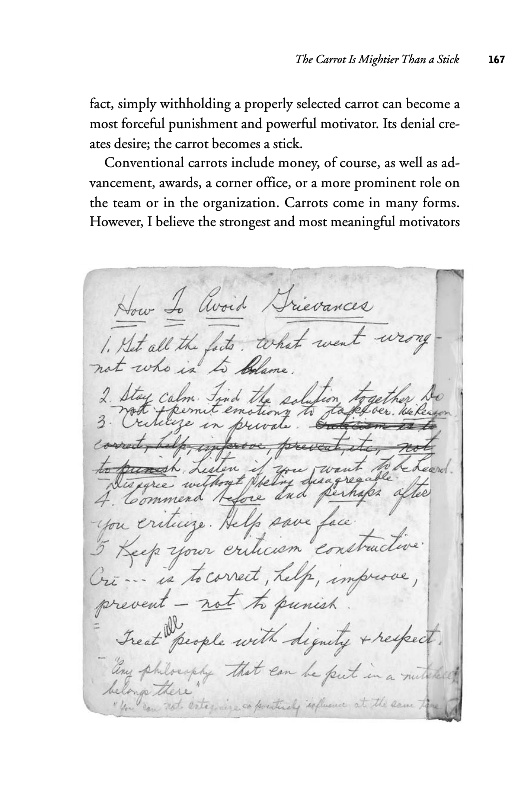 The Carrot Is Mightier Than a Stick 167
fact, simply withholding a properly selected carrot can become a
most forceful punishment and powerful motivator. Its denial cre-
ates desire; the carrot becomes a stick.
Conventional carrots include money, of course, as well as ad-
vancement, awards, a corner office, or a more prominent role on
the team or in the organization. Carrots come in many forms.
However, I believe the strongest and most meaningful motivators
How To Avoid Grievances
1. Get all the facts. What went wrong -
not who is to blame.
2. Stay calm. Find the solution together Do
not permit emotions to take over. Use Reason
3. Criticize in private. Criticism is to
correct, help, improve, prevent, etc, not
to punish. Listen if you want to be heard.
Disagree without being disagreeable
4. Commend before and perhaps after
you criticize. Help save face.
5 Keep your criticism constructive.
Cri --- is to correct, help, improve,
prevent – not to punish.
Treat all people with dignity + respect.
Any philosophy that can be put in a nutshell
belongs there
"You can not antagonize + positively influence at the same time